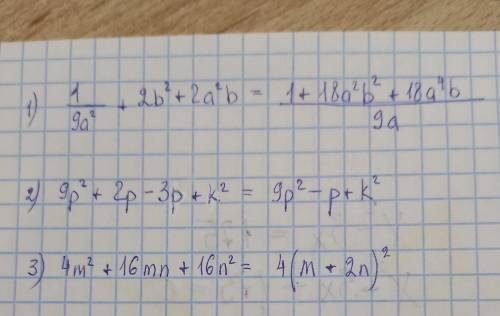 1) 1/9a² + 2b² + 2a²b = 1 + 18a²b² + 18a⁴b/9a
2) 9p² + 2p - 3p + k² = 9p² - p + k²
3) 4m² + 16mn + 16n² = 4(m + 2n)²